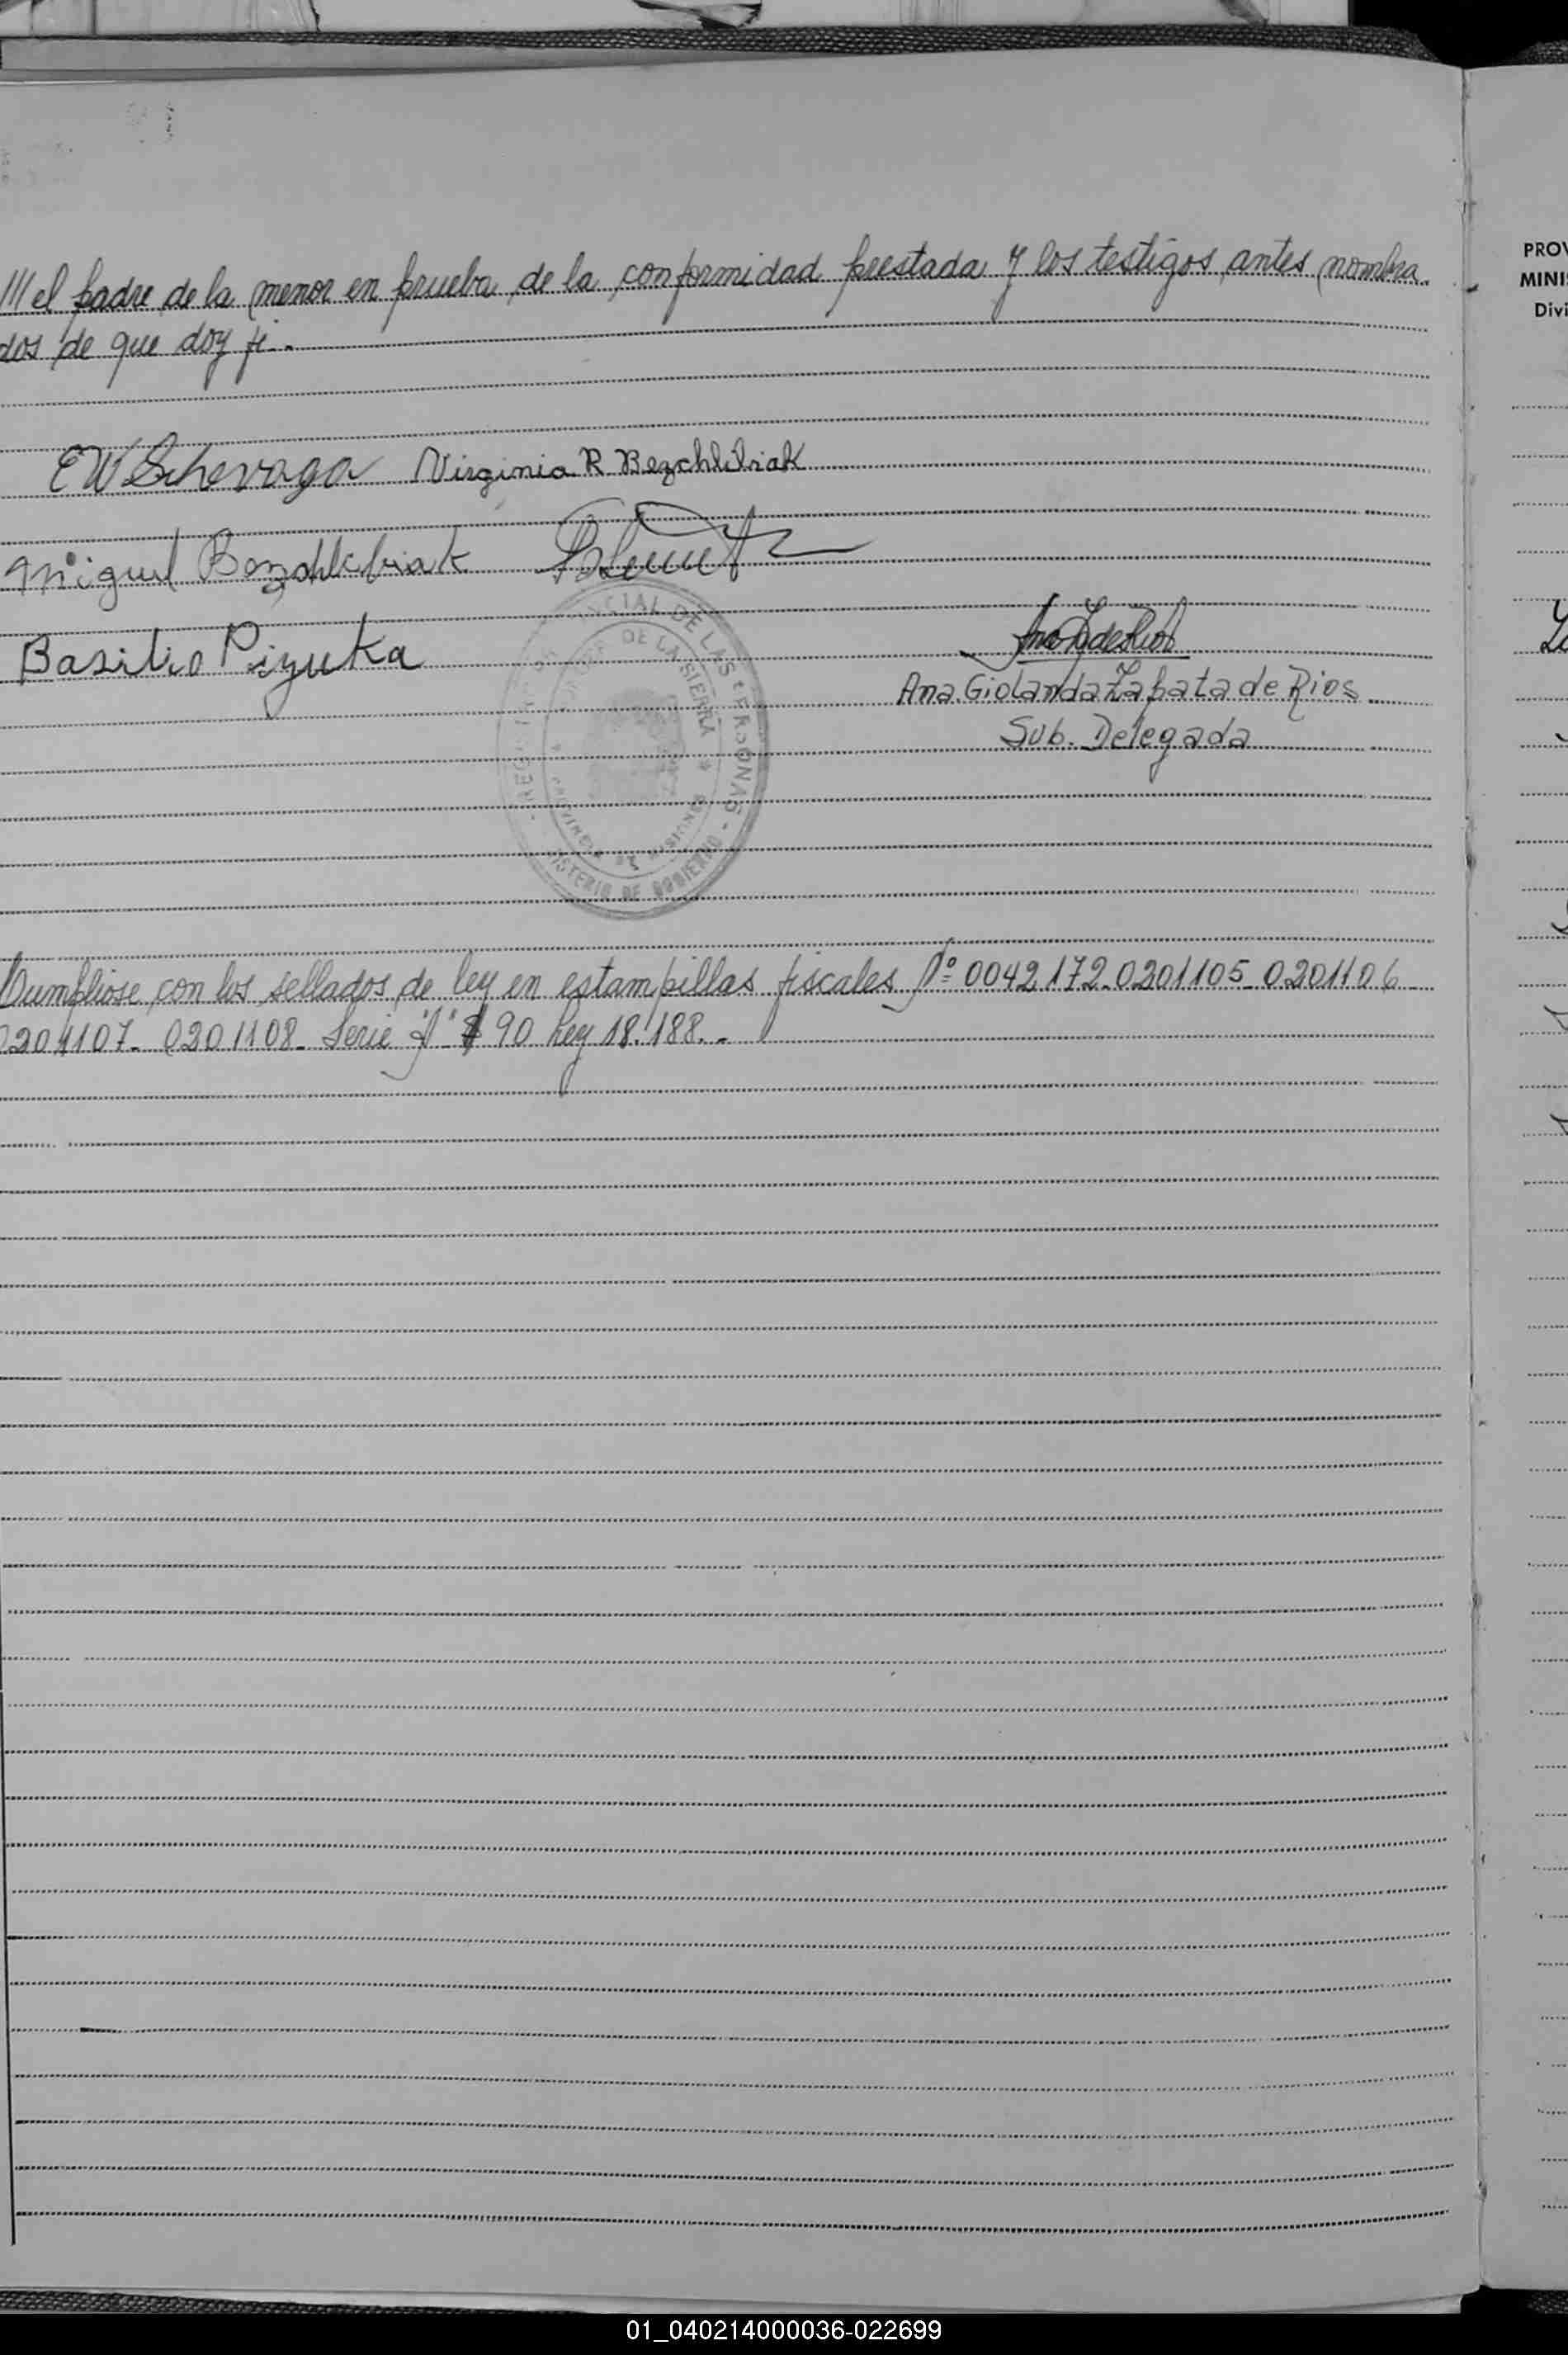 /// el padre de la menor en prueba de la conformidad prestada y los testigos antes nombra
dos de que doy fé.-
EW Schevaga Virginia R Bezchlibiak
Miguel Bezchlibiak
Basilio Pizuka
Ana Giolanda Zapata de Rios
Sub. Delegada
CIAL DE LAS PERSONAS - MINISTERIO DE GOBIERNO
DE LA SIERRA * PROVINCIA DE MISIONES *
Cumpliose con los sellados de ley en estampillas fiscales Nº 0042172-0201105-0201106-
0201107-0201108- Serie "A" $ 90 Ley 18.188.-
PROV
MINIS
Divi
01_040214000036-022699